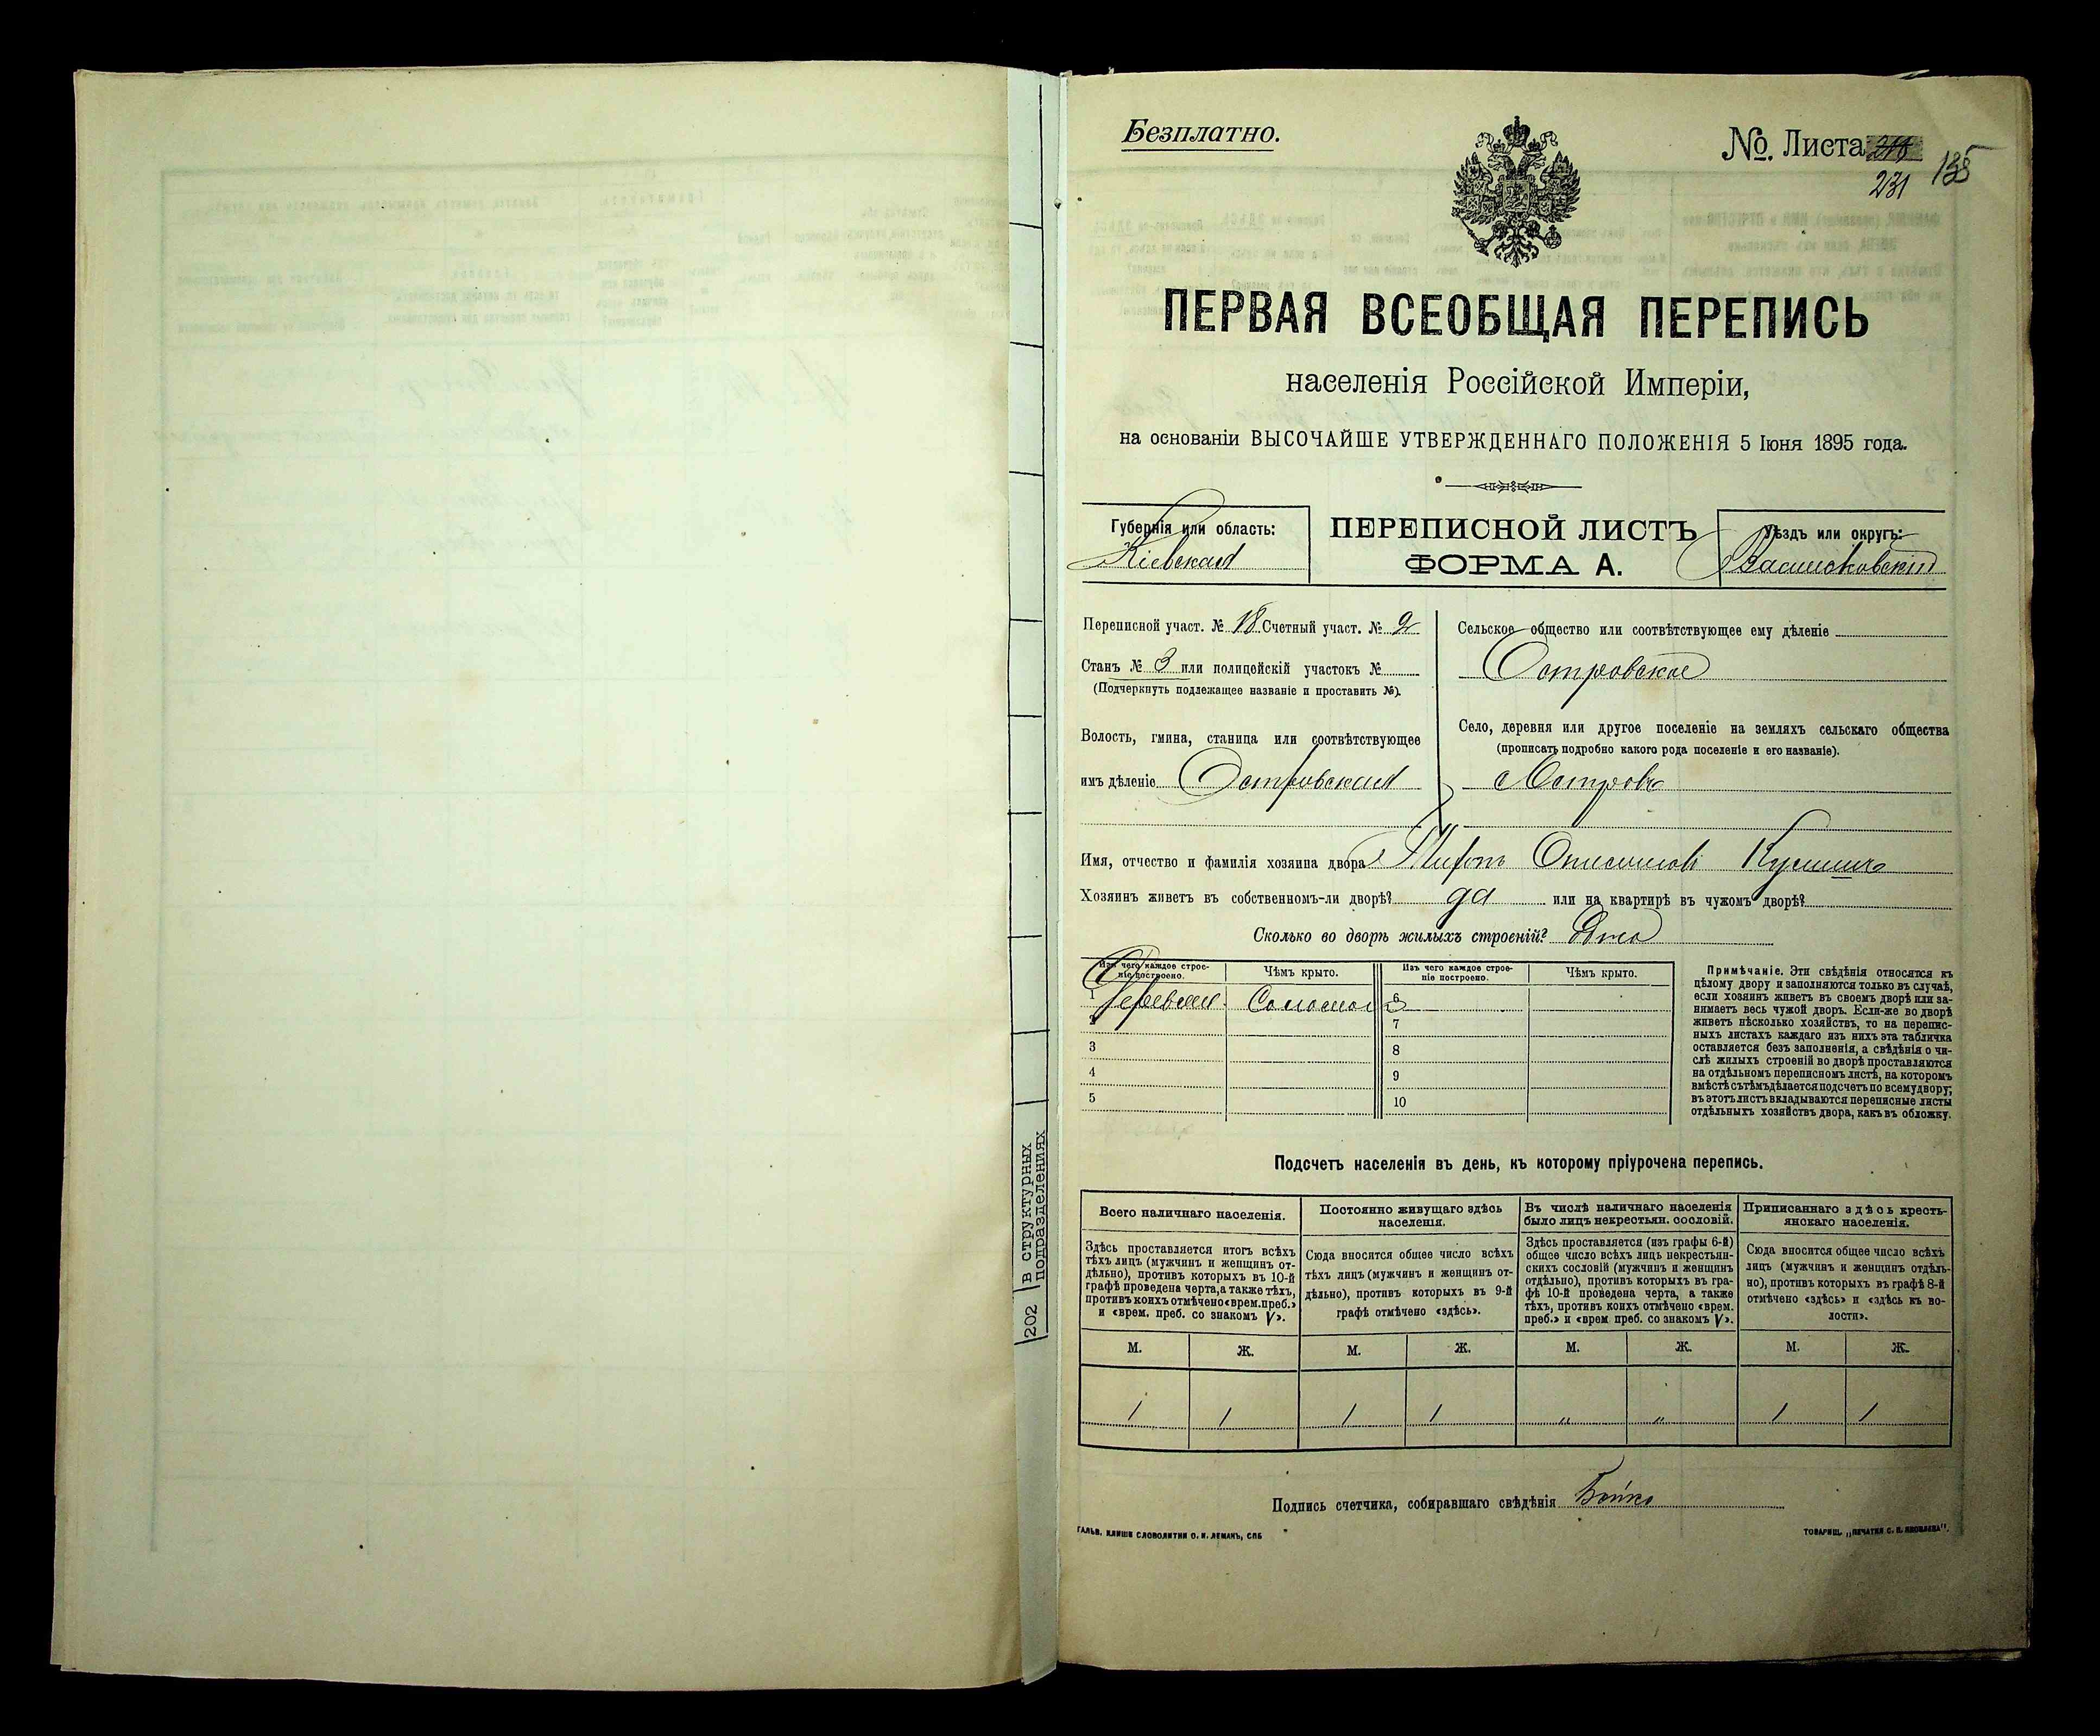 Безплатно.
№. Листа
231
135
ПЕРВАЯ ВСЕОБЩАЯ ПЕРЕПИСЬ
населенія Россійской Имперіи,
на основаніи ВЫСОЧАЙШЕ УТВЕРЖДЕННАГО ПОЛОЖЕНІЯ 5 Іюня 1895 года.
Губернія или область:
Кіевская
ПЕРЕПИСНОЙ ЛИСТЪ
ФОРМА А.
Уѣздъ или округъ:
Васильковскій
Переписной участ. № 18 Счетный участ. № 2
Станъ № 3 или полицейскій участокъ №
(Подчеркнуть подлежащее названіе и проставить №).
Волость, гмина, станица или соотвѣтствующее
имъ дѣленіе Островская
Сельское общество или соотвѣтствующее ему дѣленіе
Островское
Село, деревня или другое поселеніе на земляхъ сельскаго общества
(прописать подробно какого рода поселеніе и его названіе).
с Островъ
Имя, отчество и фамилія хозяина двора
Хозяинъ живетъ въ собственномъ-ли дворѣ? да или на квартирѣ въ чужомъ дворѣ?
Сколько во дворѣ жилыхъ строеній? Одно
Изъ чего каждое строе-
ніе построено.
Чѣмъ крыто.
Изъ чего каждое строе-
ніе построено.
Чѣмъ крыто.
1 Соломой 6
2 7
3 8
4 9
5 10
Примѣчаніе. Эти свѣдѣнія относятся къ
цѣлому двору и заполняются только въ случаѣ,
если хозяинъ живетъ въ своемъ дворѣ или за-
нимаетъ весь чужой дворъ. Если-же во дворѣ
живетъ нѣсколько хозяйствъ, то на перепис-
ныхъ листахъ каждаго изъ нихъ эта табличка
оставляется безъ заполненія, а свѣдѣнія о чи-
слѣ жилыхъ строеній во дворѣ проставляются
на отдѣльномъ переписномъ листѣ, на которомъ
вмѣстѣ съ тѣмъ дѣлается подсчетъ по всему двору;
въ этотъ листъ вкладываются переписные листы
отдѣльныхъ хозяйствъ двора, какъ въ обложку.
Подсчетъ населенія въ день, къ которому пріурочена перепись.
Всего наличнаго населенія.
Здѣсь проставляется итогъ всѣхъ
тѣхъ лицъ (мужчинъ и женщинъ от-
дѣльно), противъ которыхъ въ 10-й
графѣ проведена черта, а также тѣхъ,
противъ коихъ отмѣчено «врем. преб.»
и «врем. преб. со знакомъ V».
Постоянно живущаго здѣсь
населенія.
Сюда вносится общее число всѣхъ
тѣхъ лицъ (мужчинъ и женщинъ от-
дѣльно), противъ которыхъ въ 9-й
графѣ отмѣчено «здѣсь».
Въ числѣ наличнаго населенія
было лицъ некрестьян. сословій.
Здѣсь проставляется (изъ графы 6-й)
общее число всѣхъ лицъ некрестьян-
скихъ сословій (мужчинъ и женщинъ
отдѣльно), противъ которыхъ въ гра-
фѣ 10-й проведена черта, а также
тѣхъ, противъ коихъ отмѣчено «врем.
преб.» и «врем преб. со знакомъ V».
Приписаннаго здѣсь кресть-
янскаго населенія.
Сюда вносится общее число всѣхъ
лицъ (мужчинъ и женщинъ отдѣль-
но), противъ которыхъ въ графѣ 8-й
отмѣчено «здѣсь» и «здѣсь къ во-
лости».
М. Ж. М. Ж. М. Ж. М. Ж.
1 1 1 1 „ „ 1 1
Подпись счетчика, собиравшаго свѣдѣнія Бойко
ГАЛЬВ. КЛИШЕ СЛОВОЛИТНИ О. И. ЛЕМАНЪ, СПБ
ТОВАРИЩ. „ПЕЧАТНЯ С. П. ЯКОВЛЕВА“.
202
в структурных
подразделениях